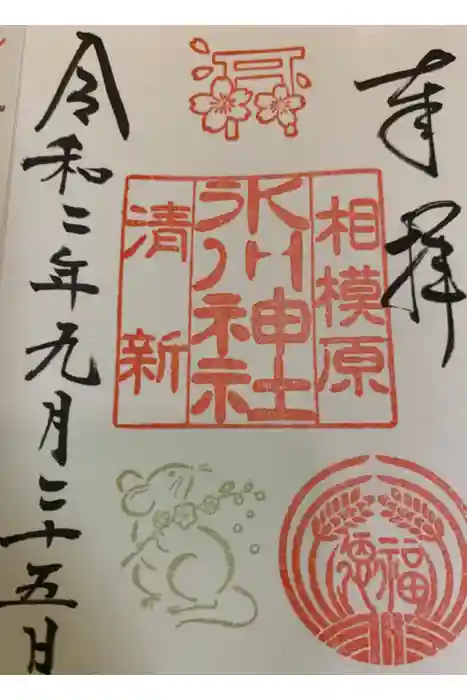 奉拝
相模原
氷川神社
清新
福徳
令和二年九月二十五日